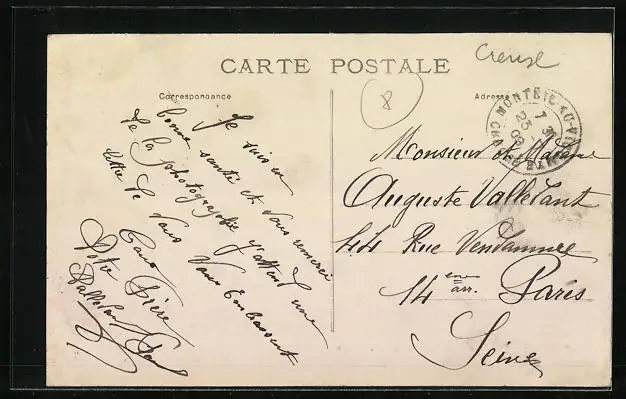 Creuse
CARTE POSTALE
8
Correspondance
Adresse
MONTEIL-AU-V
7
23
09
CREUSE
Je suis en
bonne santé et vous remercie
de la photographie j'attend une
lettre de vous Vous Embrassent
Votre Frère
Vallelant Paul
Monsieur et Madame
Auguste Vallelant
44 Rue Vendamme
14 em arr. Paris
Seine